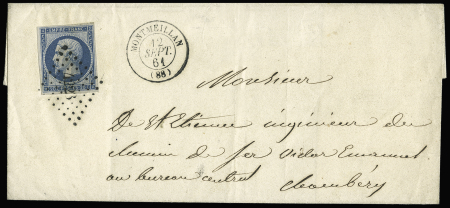 EMPIRE FRANC.
MONTMEILLAN
12
SEPT.
61
(88)
Monsieur
De St Etienne ingénieur du
chemin de fer Victor Emanuel
au bureau central Chambéry